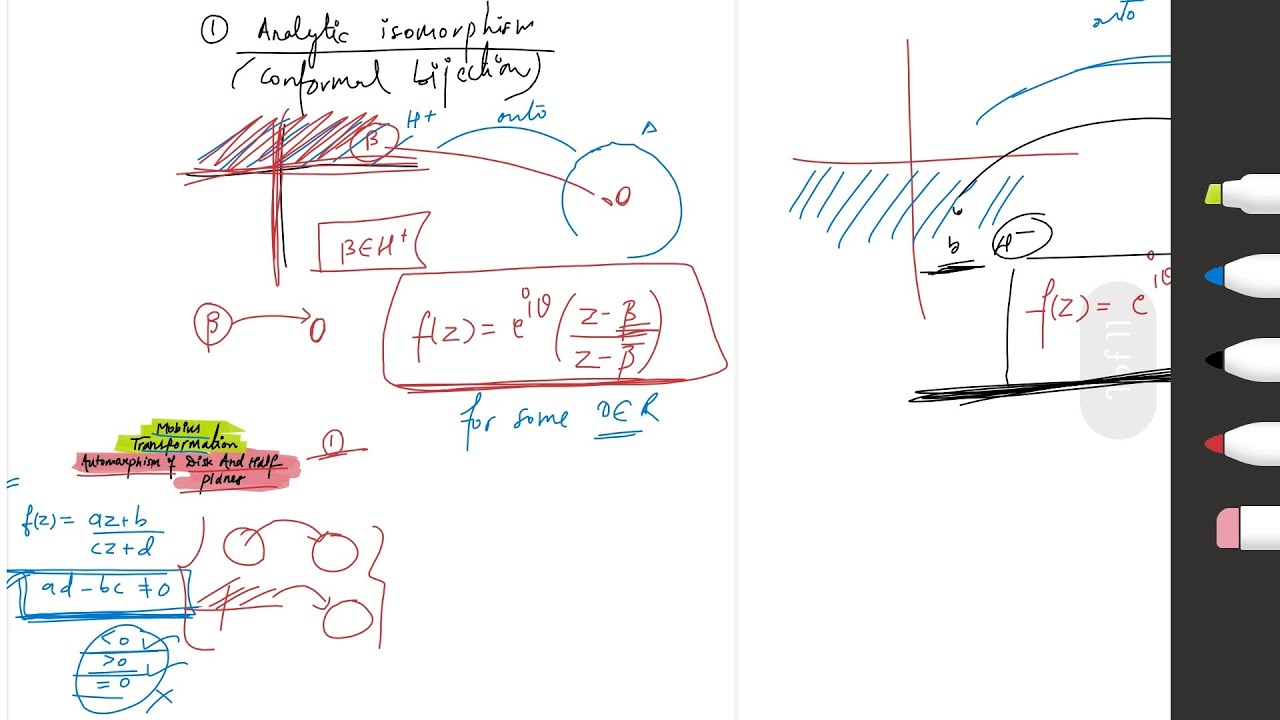 ① Analytic isomorphism
(conformal bijection)
H+
onto
Δ
β
0
β∈H⁺
f(z) = e^{iθ} ( (z-β) / (z-β̅) )
β
0
for some θ∈R
Mobius
Transformation
Automorphism of Disk And Half
planes
①
=
f(z) = az+b
cz+d
ad-bc ≠ 0
< 0 ✓
>0 ✓
= 0 ×
onto
b
H⁻
f(z) = e^{iθ}